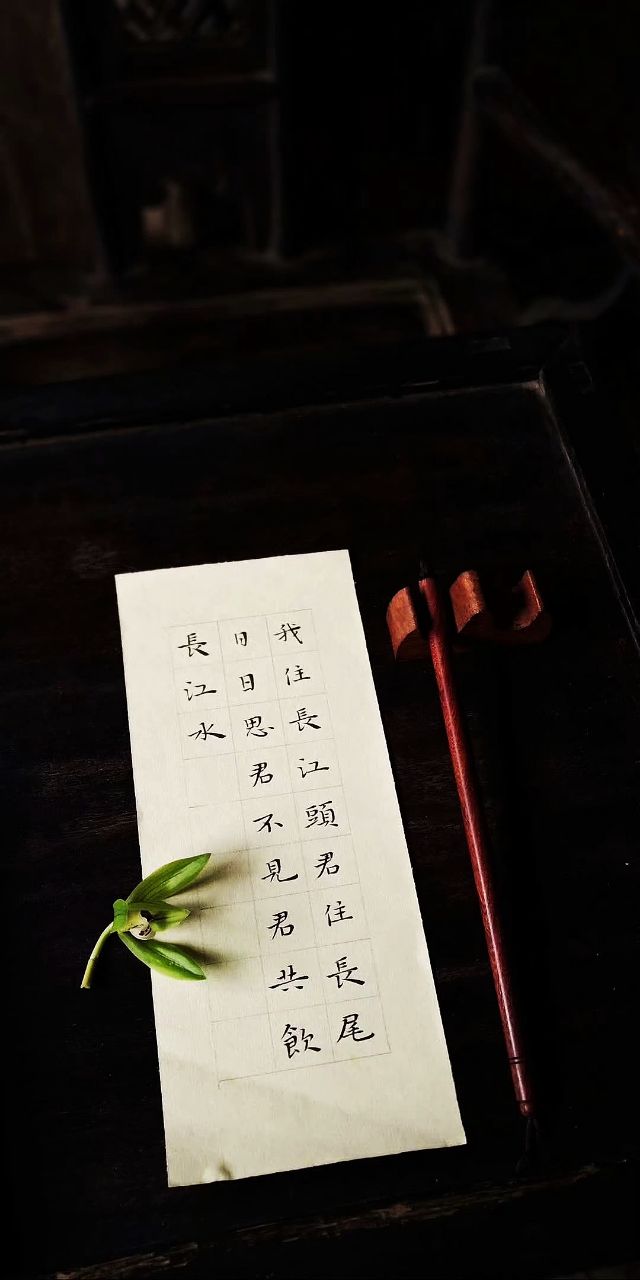 我住長江頭君住長尾
日日思君不見君共飲
長江水